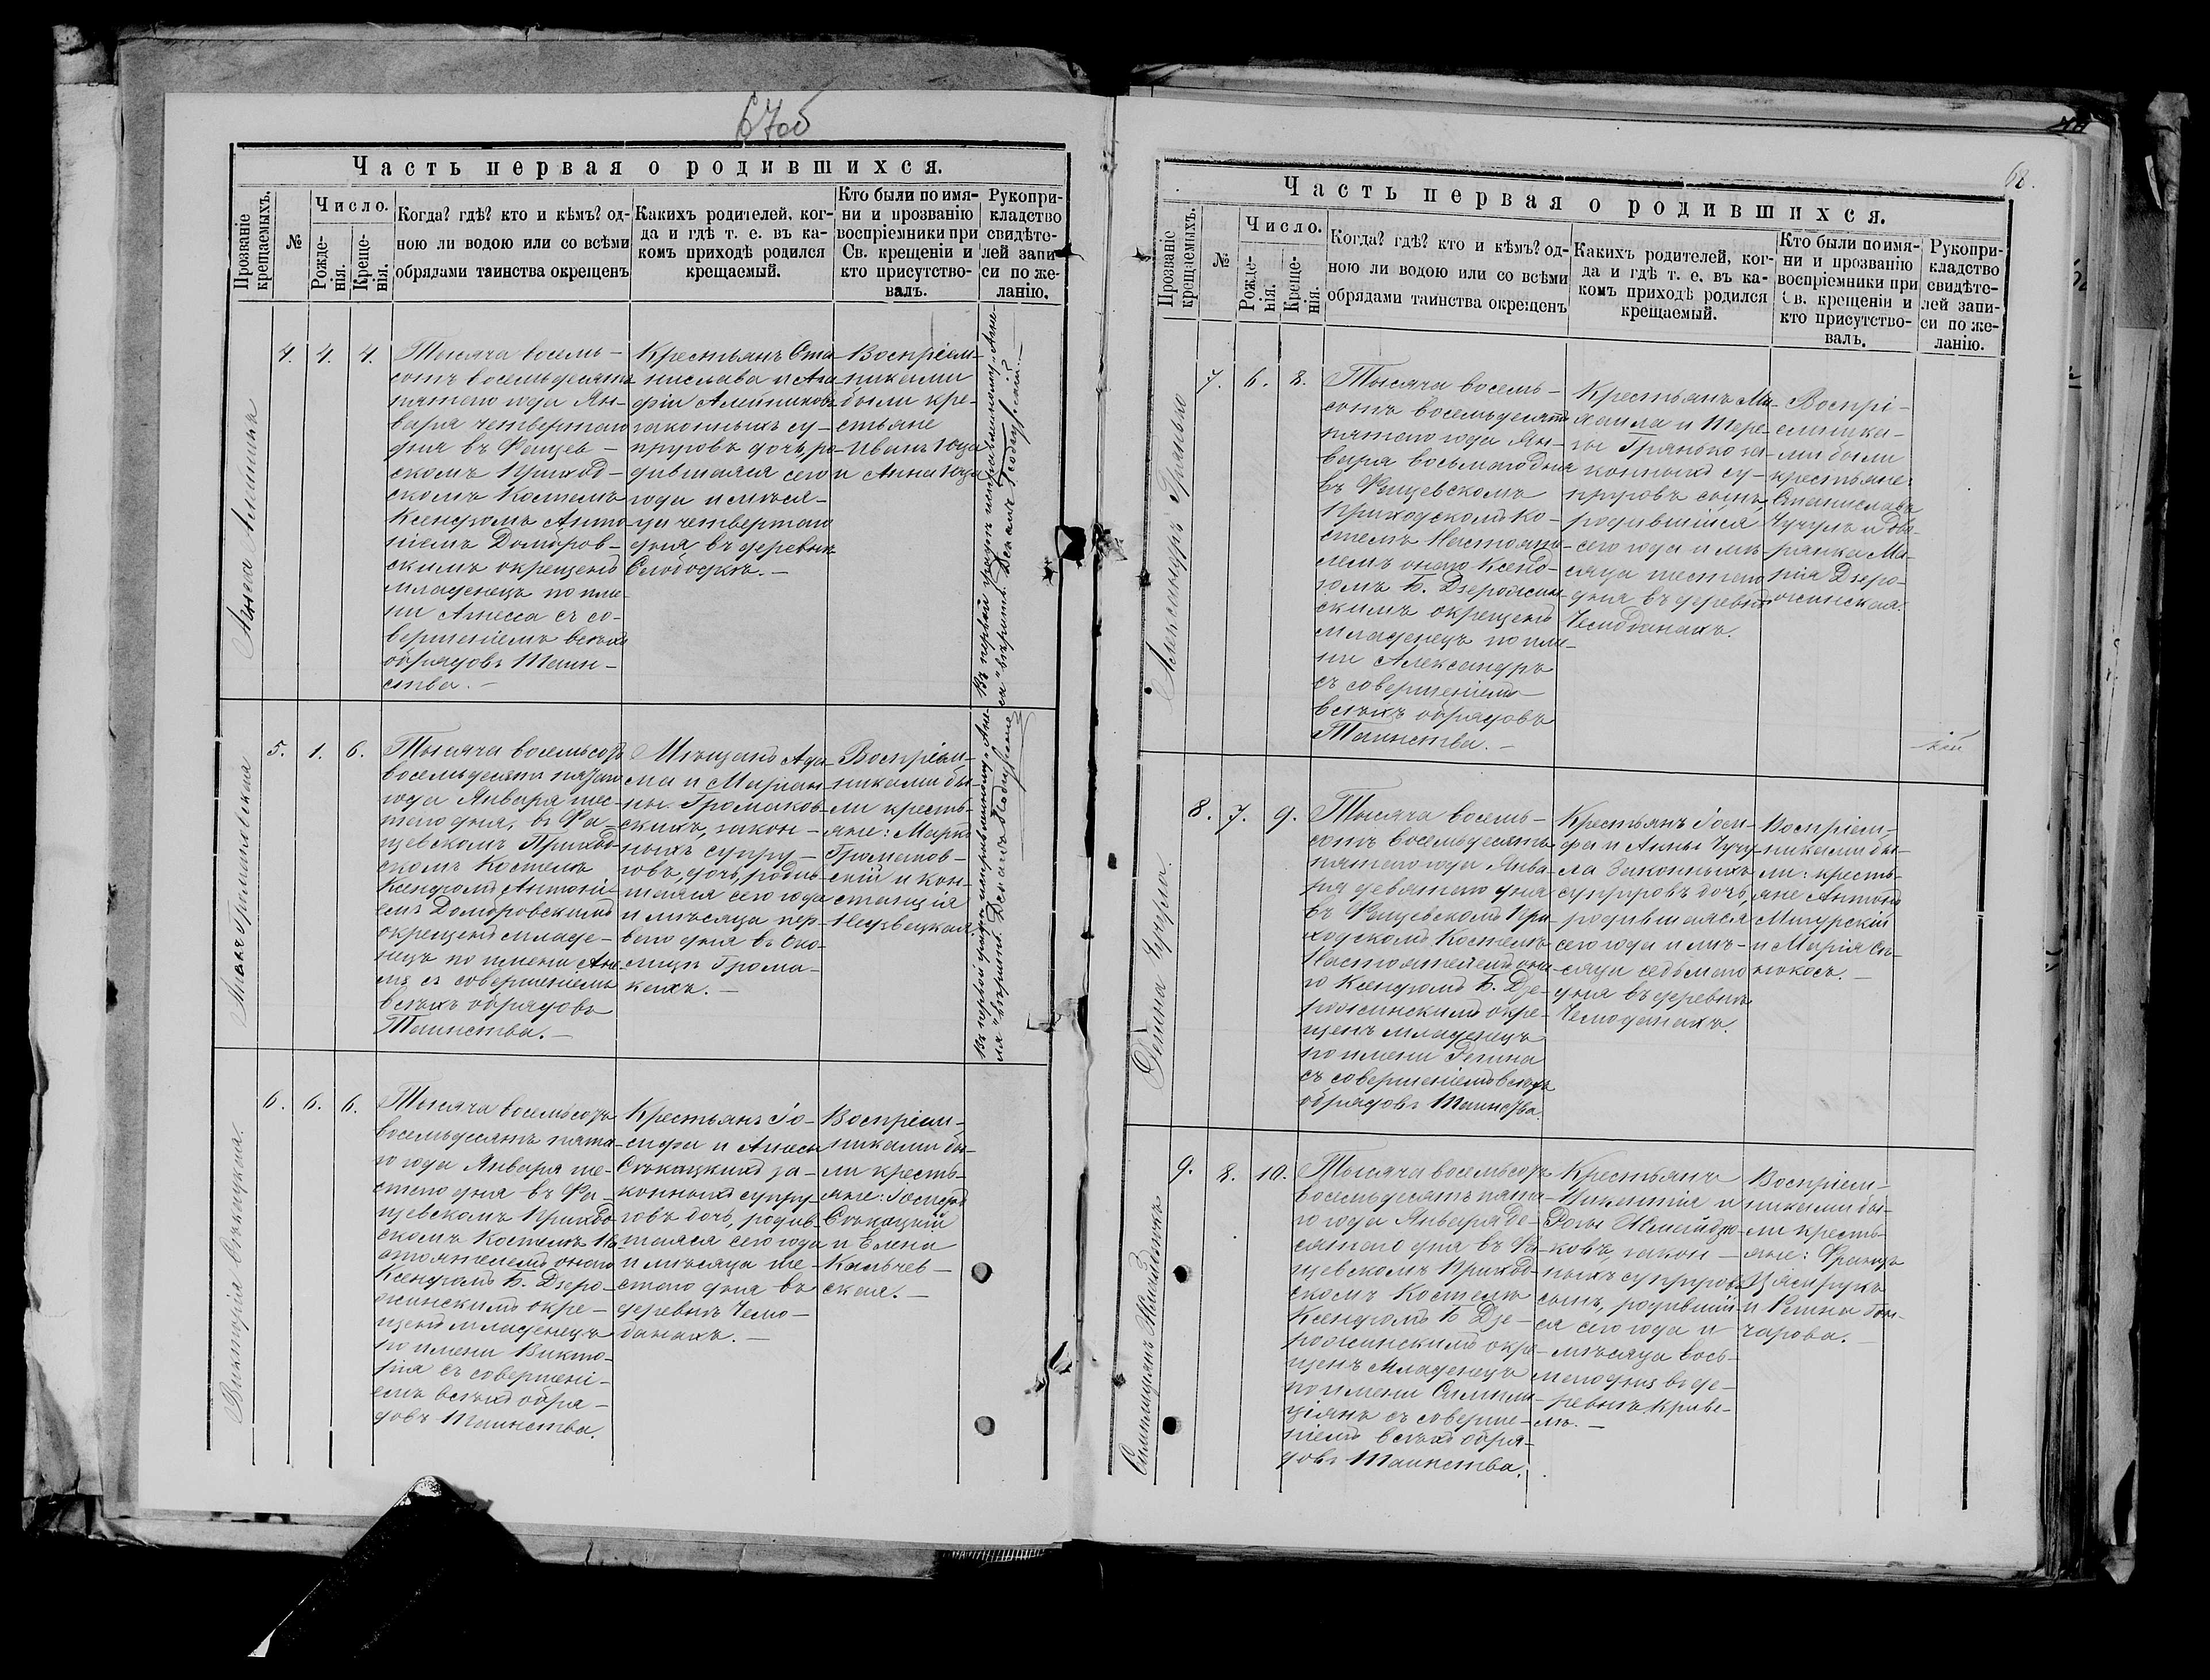 67об
Часть первая о родившихся.
Прозваніе крещаемыхъ.
№
Число.
Рожде-
нія.
Креще-
нія.
Когда? гдѣ? кто и кѣмъ? од-
ною ли водою или со всѣми
обрядами таинства окрещенъ
Какихъ родителей, ког-
да и гдѣ т. е. въ ка-
комъ приходѣ родился
крещаемый.
Кто были по имя-
ни и прозванію
воспріемники при
Св. крещеніи и
кто присутство-
валъ.
Рукопри-
кладство
свидѣте-
лей запи-
си по же-
ланію.
4. 4. 4.
Тысяча восемь-
сотъ восемьдесятъ
пятаго года Ян-
варя четвертаго
дня въ Фащев-
скомъ Приход-
скомъ Костелѣ
Ксендзомъ Анто-
ніемъ Домбров-
скимъ окрещенъ
младенецъ по име-
ни Агнесса съ со-
вершеніемъ всѣхъ
обрядовъ Таин-
ства.-
Крестьянъ Ста-
нислава и Ага-
фіи
законныхъ су-
пруговъ дочь, ро-
дившаяся сего
года и мѣся-
ца четвертаго
дня въ деревнѣ
Слободкѣ.-
Воспріем-
никами
были кре-
стьяне
Иванъ Юца
и Анна Юца
5. 1. 6.
Громаковская
Тысяча восемьсотъ
восемьдесятъ пятаго
года Января шес-
таго дня, въ Фа-
щевскомъ Приход-
скомъ Костелѣ
Ксендзомъ Антоні-
емъ Домбровскимъ
окрещенъ младе-
нецъ по имени
съ совершеніемъ
всѣхъ обрядовъ
Таинства.-
Мѣщанъ Ада-
ма и Маріан-
ны Громаков-
скихъ, закон-
ныхъ супру-
говъ, дочь, родив-
шаяся сего года
и мѣсяца пер-
ваго дня въ око-
лицѣ Грома-
кахъ.-
Воспріем-
никами бы-
ли кресть-
яне: Марко
Громаков-
скій и Кон-
станція
Недзвецкая
6. 6. 6.
Викторія Сѣкацкая.
Тысяча восемьсотъ
восемьдесятъ пята-
го года Января ше-
стаго дня въ Фа-
щевскомъ Приход-
скомъ Костелѣ На-
стоятелемъ онаго
Ксендзомъ Б. Дзеро-
жинскимъ окре-
щенъ младенецъ
по имени Викто-
рія съ совершені-
емъ всѣхъ обря-
довъ Таинства.
Крестьянъ Іо-
сифа и Агнесы
Сѣкацкихъ за-
конныхъ супру-
говъ дочь, родив-
шаяся сего года
и мѣсяца ше-
стаго дня въ
деревнѣ Чемо-
данахъ.-
Воспріем-
никами бы-
ли кресть-
яне: Іосифъ
Сѣкацкій
и Елена
Кальчев-
ская.-
68.
Часть первая о родившихся.
Прозваніе крещаемыхъ.
№
Число.
Рожде-
нія.
Креще-
нія.
Когда? гдѣ? кто и кѣмъ? од-
ною ли водою или со всѣми
обрядами таинства окрещенъ
Какихъ родителей, ког-
да и гдѣ т. е. въ ка-
комъ приходѣ родился
крещаемый.
Кто были по имя-
ни и прозванію
воспріемники при
Св. крещеніи и
кто присутство-
валъ.
Рукопри-
кладство
свидѣте-
лей запи-
си по же-
ланію.
7. 6. 8.
Александръ Гранько
Тысяча восемь-
сотъ восемьдесятъ
пятаго года Ян-
варя восьмаго дня
въ Фащевскомъ
Приходскомъ Ко-
стелѣ Настояте-
лемъ онаго Ксенд-
зомъ Б. Дзерожин-
скимъ окрещенъ
младенецъ по име-
ни Александръ
съ совершеніемъ
всѣхъ обрядовъ
Таинства.-
Крестьянъ Ми-
хаила и Тере-
зы Гранько за-
конныхъ су-
пруговъ сынъ,
родившійся
сего года и мѣ-
сяца шестаго
дня въ деревнѣ
Чемоданахъ.
Воспрі-
емника-
ми были
крестьяне:
Станиславъ
Чучулъ и дво-
рянка Ма-
рія Дзеро-
жинская.
8. 7. 9.
Тысяча восемь-
сотъ восемьдесятъ
пятаго года Янва-
ря девятаго дня
въ Фащевскомъ При-
ходскомъ Костелѣ
Настоятелемъ она-
го Ксендзомъ Б. Дзе-
рожинскимъ окре-
щенъ младенецъ
по имени
съ совершеніемъ всѣхъ
обрядовъ Таинства.
Крестьянъ Іоси-
фа и Анны Чучу-
ла законныхъ
супруговъ дочь,
родившаяся
сего года и мѣ-
сяца седьмаго
дня въ деревнѣ
Чемоданахъ.
Воспріем-
никами бы-
ли: кресть-
яне Антонъ
Мигурскій
и Марія
9. 8. 10.
Тысяча восемьсотъ
восемьдесятъ пята-
го года Января де-
сятаго дня въ Фа-
щевскомъ Приход-
скомъ Костелѣ
Ксендзомъ Б. Дзе-
рожинскимъ окре-
щенъ младенецъ
по имени
съ соверше-
ніемъ всѣхъ обря-
довъ Таинства.
Крестьянъ
Викентія и
Розы
закон-
ныхъ супруговъ
сынъ, родившій-
ся сего года и
мѣсяца вось-
маго дня въ де-
ревнѣ
Воспріем-
никами бы-
ли кресть-
яне: Францъ
и Регина Гон-
чарова.-